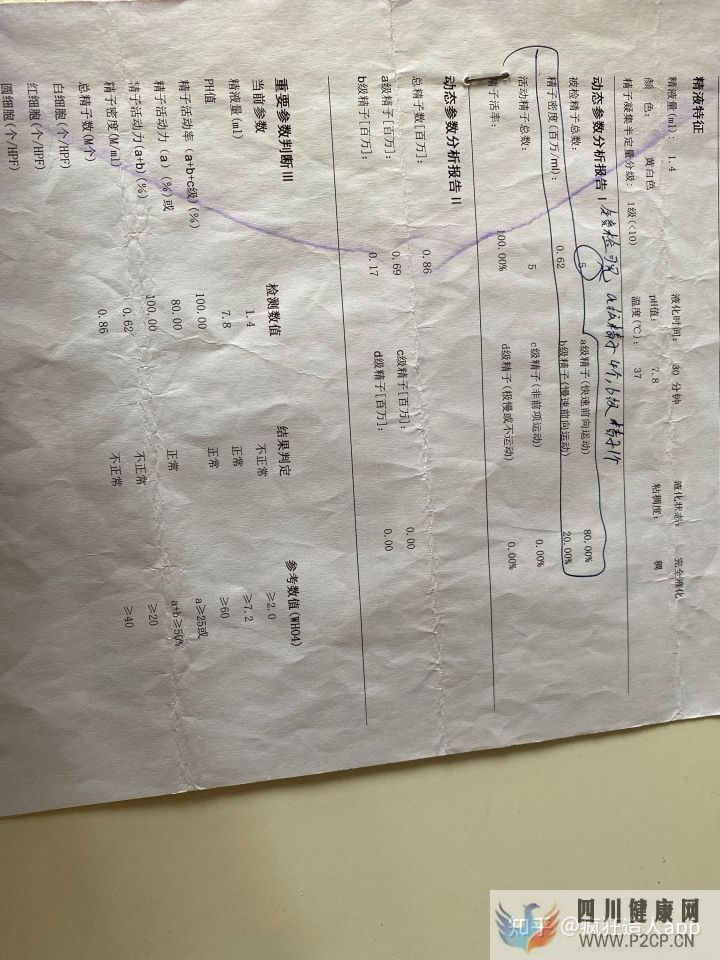 精液特征
精液量(ml): 1.4 液化时间: 30 分钟 液化状态: 完全液化
颜 色: 黄白色 pH值: 7.8 粘稠度: 稠
精子凝集半定量分级: 1级(<10) 温度(℃): 37
动态参数分析报告 I 镜检可见 a级精子4个,b级精子1个
被检精子总数: 5 a级精子(快速前向运动) 80.00%
精子密度(百万/ml): 0.62 b级精子(慢速前向运动) 20.00%
活动精子总数: 5 c级精子(非前项运动) 0.00%
精子活率: 100.00% d级精子(极慢或不运动) 0.00%
动态参数分析报告 II
总精子数[百万]: 0.86
a级精子[百万]: 0.69 c级精子[百万]: 0.00
b级精子[百万]: 0.17 d级精子[百万]: 0.00
重要参数判断 III
当前参数 检测数值 结果判定 参考数值(WHO4)
精液量(ml) 1.4 不正常 ≥2.0
PH值 7.8 正常 ≥7.2
精子活动率 (a+b+c级)(%) 100.00 正常 ≥60
精子活动力 (a) (%)或 80.00 a≥25或
精子活动力(a+b)(%) 100.00 正常 a+b≥50%
精子密度(M/ml) 0.62 不正常 ≥20
总精子数(M个) 0.86 不正常 ≥40
白细胞(个/HPF)
红细胞(个/HPF)
圆细胞(个/HPF)
四川健康网
知乎 @疯狂造人app
WWW.P2CP.CN